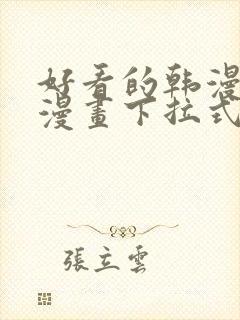 好看的韩漫
漫畫下拉式
張立雲